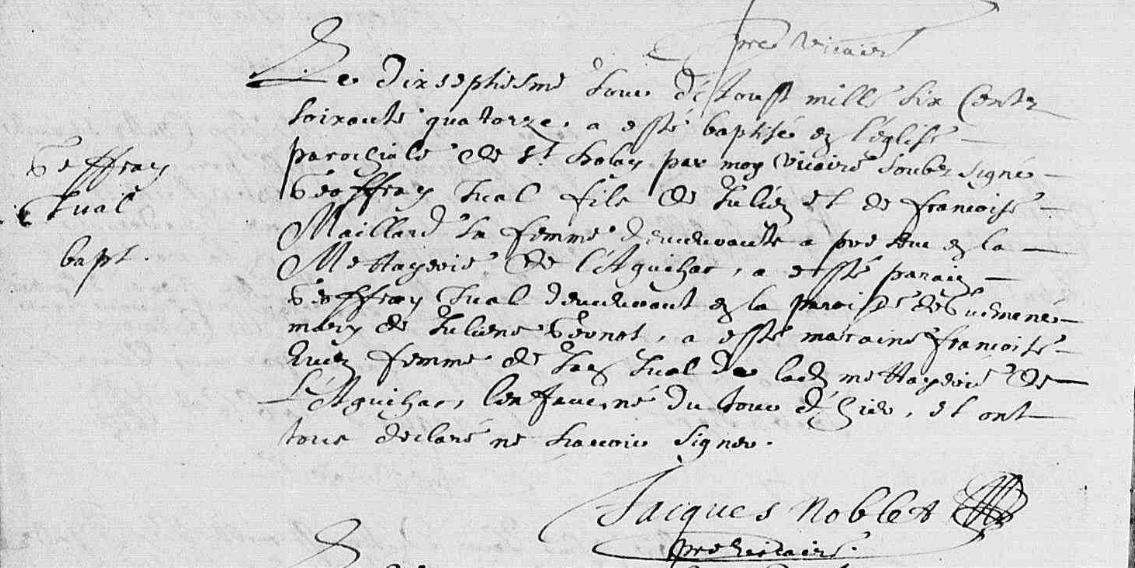 pre vicaire
Le dixseptiesme jour d'aoust mille six cents
soixante quatorze, a esté baptisé en l'eglise
parochiale de st Nolay par moy vicaire soubsigné
Geffray
Geoffray Tual fils de Julien et de francoise
Tual
Maillard sa femme demeurante a present en la
bapt.
Mettayerie de l'Aguihac, a esté parain
Geoffray Tual demeurant en la paroisse de Guemené
mary de Juliene Vernot, a esté maraine francoise
femme de Jan Tual de lad mettayerie de
L'Aguihac, l'enfan né du jour d'hier, et ont
tous declaré ne scavoir signer.
Jacques Noblet
pre vicaire.